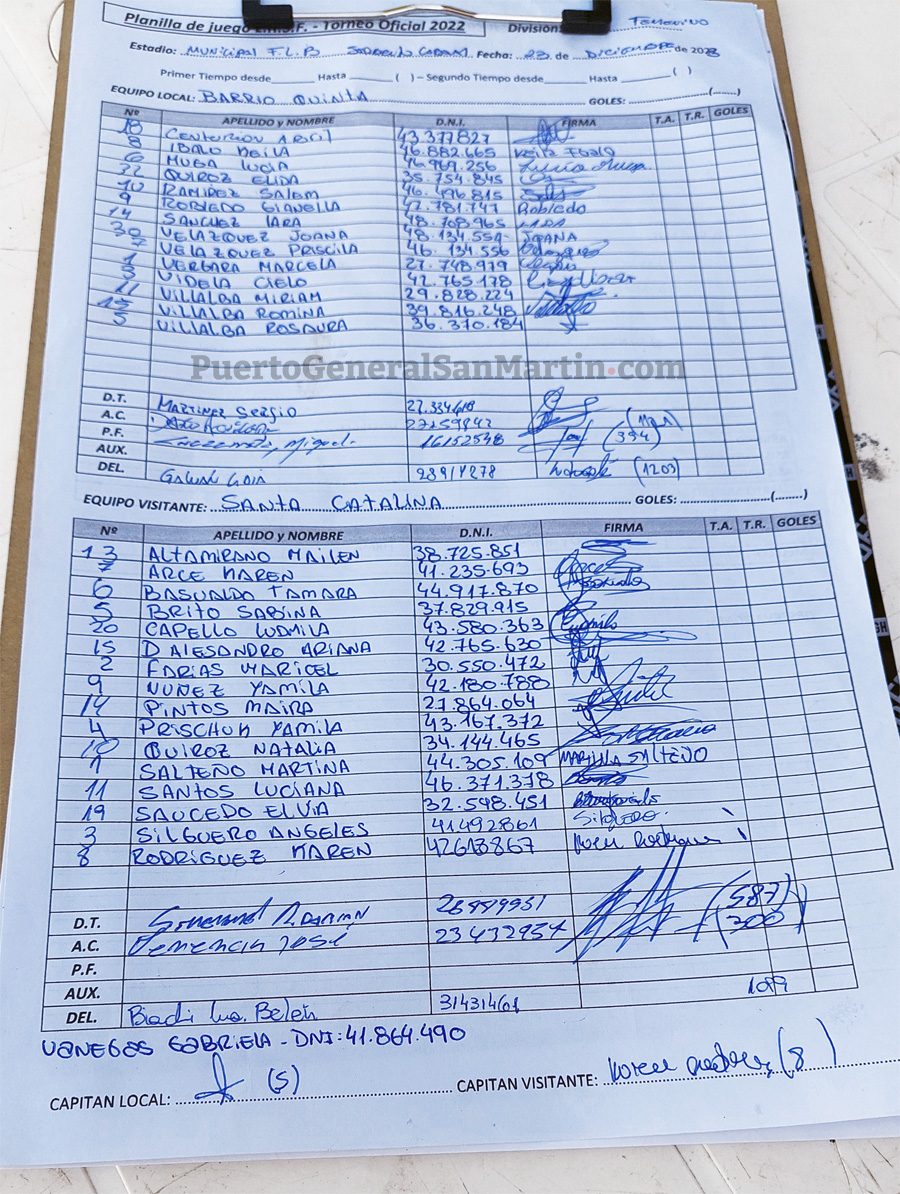 Planilla de juego L.R.S.F. - Torneo Oficial 2022 División: Femenino
Estadio: MUNICIPAL F.L.B Fecha: 23 de DICIEMBRE de 2023
Primer Tiempo desde Hasta ( ) - Segundo Tiempo desde Hasta ( )
EQUIPO LOCAL: BARRIO QUINTA GOLES: (........)
Nº APELLIDO y NOMBRE D.N.I. FIRMA T.A. T.R. GOLES
18 CENTURION ABRIL 43.377827
8 IBALO KEILA 46.882.665 Keila Ibalo
6 MUGA LUCIA 46.969.256 Lucia Muga
22 QUIROZ ELIDA 35.754.845
10 RAMIREZ SALEM 46.496.815
9 ROBLEDO GIANELLA 42.781.747 Robledo
14 SANCHEZ LARA 48.768.965 LARA
30 VELAZQUEZ JOANA 48.134.554 JOANA
7 VELAZQUEZ PRISCILA 46.134.556
1 VERGARA MARCELA 27.748.979
3 VIDELA CIELO 42.765.178
11 VILLALBA MIRIAM 29.828.224
15 VILLALBA ROMINA 39.816.248
5 VILLALBA ROSAURA 36.370.184
PuertoGeneralSanMartin.com
D.T. MARTINEZ Sergio 27.334618
A.C. 22159842 (1121)
P.F. Miguel 16152548 (394)
AUX.
DEL. 28917278 (1203)
EQUIPO VISITANTE: SANTA CATALINA GOLES: (........)
Nº APELLIDO y NOMBRE D.N.I. FIRMA T.A. T.R. GOLES
13 ALTAMIRANO MAILEN 38.725.851
7 ARCE KAREN 41.235.693 Arce
6 BASUALDO TAMARA 44.917.870
5 BRITO SABINA 37.829.915
20 CAPELLO LUDMILA 43.580.363
15 D ALESANDRO ARIANA 42.765.630
2 FARIAS MARICEL 30.550.472
9 NUÑEZ YAMILA 42.180.788
14 PINTOS MAIRA 27.864.064
4 PRISCHUK YAMILA 43.167.372
10 QUIROZ NATALIA 34.144.465
1 SALTEÑO MARTINA 44.305.109 MARTINA SALTEÑO
11 SANTOS LUCIANA 46.371.378
19 SAUCEDO ELVIA 32.598.451
3 SILGUERO ANGELES 41492861 SilgUERO
8 RODRIGUEZ KAREN 42613867 Karen Rodriguez
D.T. 26889931 (587)
A.C. José 23432957 (300)
P.F.
AUX.
DEL. Biadi Ma. Belén 31431461 1099
VANEGAS GABRIELA - DNI: 41.864.490
CAPITAN LOCAL: (5) CAPITAN VISITANTE: Karen Rodriguez (8)